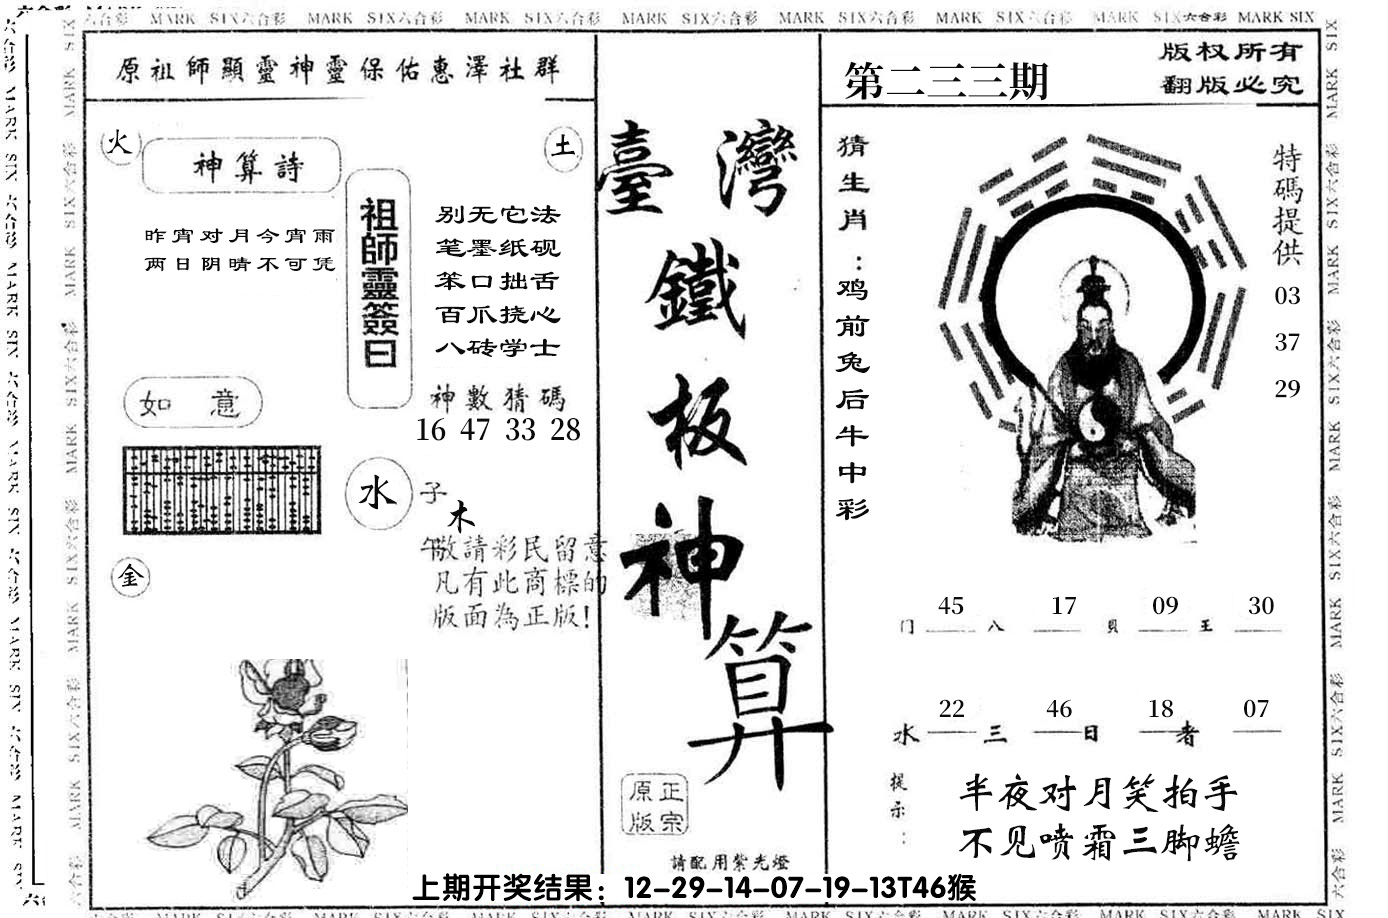 MARK SIX六合彩 MARK SIX六合彩 MARK SIX六合彩 MARK SIX六合彩 MARK SIX六合彩 MARK SIX六合彩 MARK SIX六合彩 MARK SIX
原祖師顯靈神靈保佑惠澤社群
火
神算詩
土
昨宵对月今宵雨
两日阴晴不可凭
祖師靈簽曰
别无它法
笔墨纸砚
笨口拙舌
百爪挠心
八砖学士
神數猜碼
16 47 33 28
如 意
水
子
木
午
金
敬請彩民留意
凡有此商標的
版面為正版!
臺灣
鐵
板
神
算
正宗
原版
請配用紫光燈
第二三三期
版权所有
翻版必究
猜生肖:鸡前兔后牛中彩
特碼提供
03
37
29
门 45 八 17 貝 09 王 30
水 22 三 46 日 18 者 07
提示:
半夜对月笑拍手
不见喷霜三脚蟾
上期开奖结果：12-29-14-07-19-13T46猴